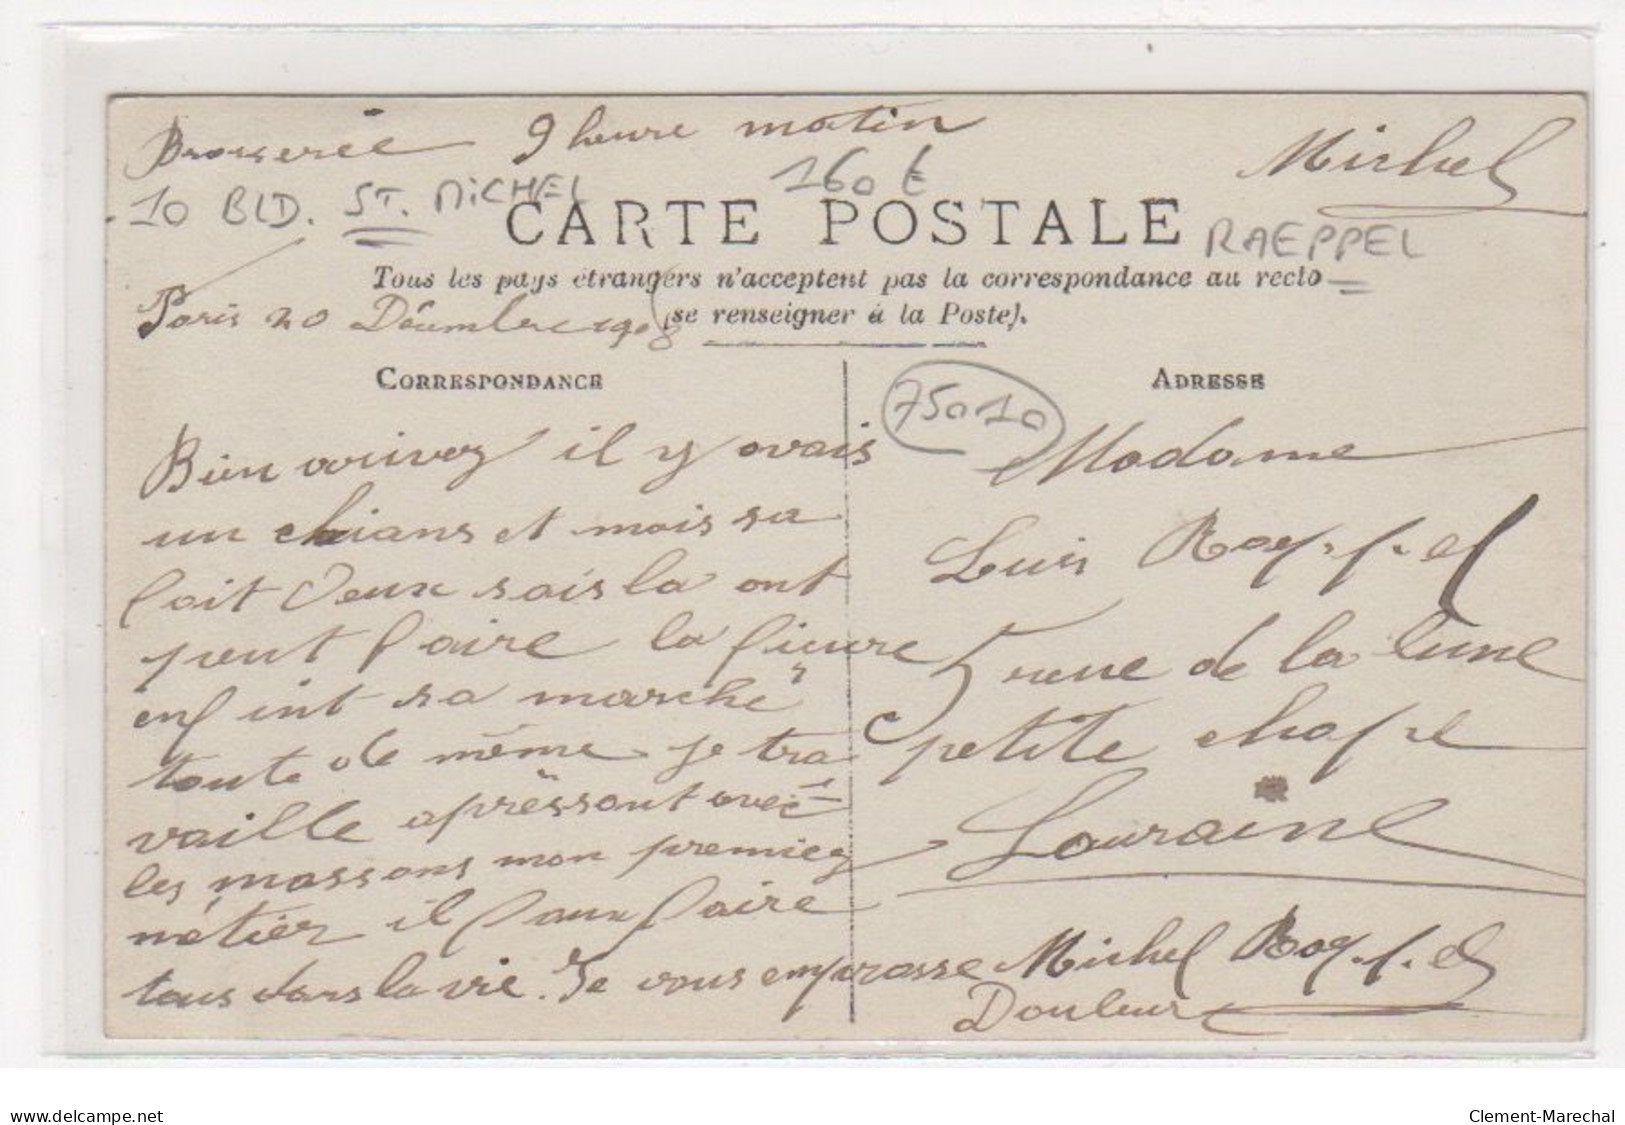 Brasserie 9 heure matin
Michel
160 €
10 BLD. ST. MICHEL
CARTE POSTALE
RAEPPEL
Tous les pays étrangers n'acceptent pas la correspondance au recto
(se renseigner à la Poste).
Paris 20 Décembre 1908
CORRESPONDANCE
ADRESSE
75010
Bien arrivez il y avais
un chians et mais sa
fait deux sais la ont
peut faire la fieure
enf int sa marche
toute de même je tra
vaille apressont avec
les massons mon premiez
métier il faux faire
tous dans la vie. Je vous emprasse
Madame
Luis Raeppel
5 reue de la lune
petite chape
Louraine
Michel Raeppel
Douleur
delcampe.net
Clement-Marechal